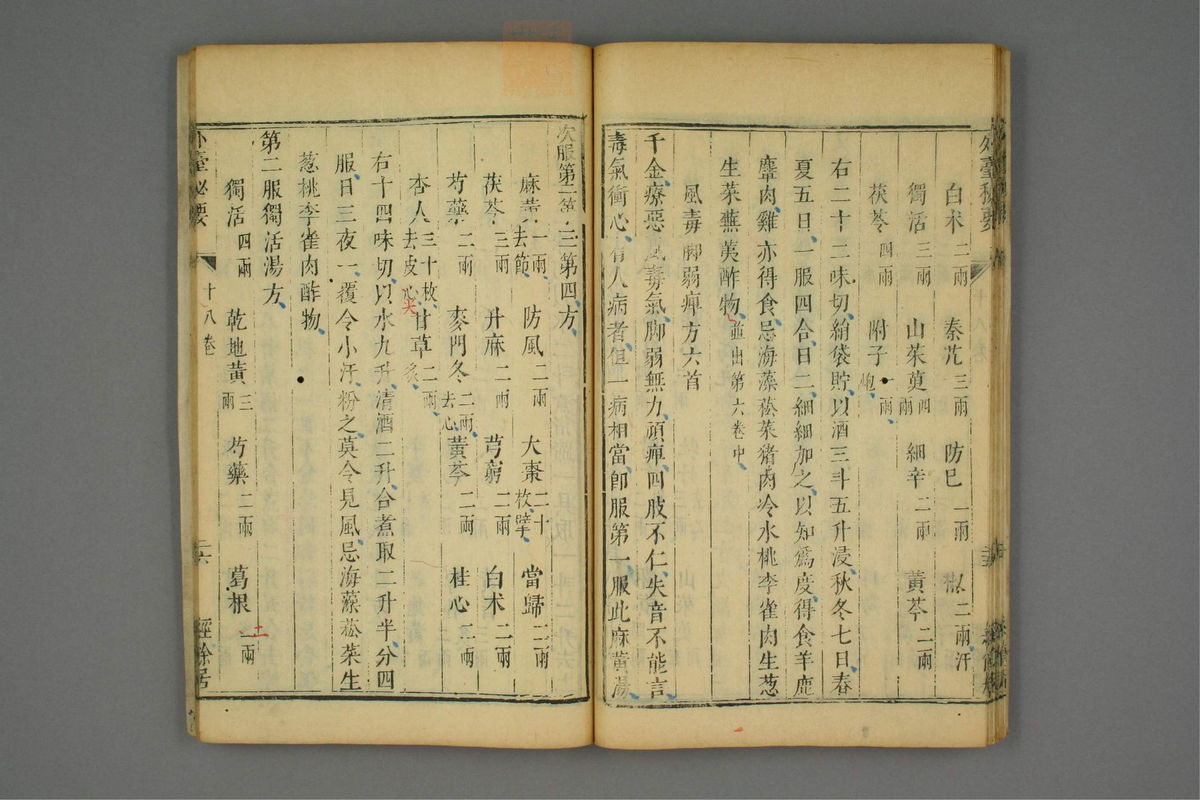 外臺秘要
白朮二兩 秦艽三兩 防巳一兩 椒二兩汗
獨活三兩 山茱萸四兩 細辛二兩 黃芩二兩
茯苓四兩 附子一兩炮
右二十二味切絹袋貯以酒三斗五升浸秋冬七日春
夏五日一服四合日二細細加之以知爲度得食羊鹿
麞肉雞亦得食忌海藻菘菜猪肉冷水桃李雀肉生葱
生菜蕪荑酢物並出第六卷中
風毒脚弱痺方六首
千金療惡風毒氣脚弱無力頑痺四肢不仁失音不能言
毒氣衝心有人病者但一病相當卽服第一服此麻黃湯
次服第二第三第四方
麻黃一兩去節 防風二兩 大棗二十枚擘 當歸二兩
茯苓三兩 升麻二兩 芎藭二兩 白朮二兩
芍藥二兩 麥門冬二兩去心 黃芩二兩 桂心二兩
杏人三十枚去皮尖 甘草二兩炙
右十四味切以水九升清酒二升合煮取二升半分四
服日三夜一覆令小汗粉之莫令見風忌海藻菘菜生
葱桃李雀肉酢物
第二服獨活湯方
獨活四兩 乾地黃三兩 芍藥二兩 葛根二兩
外臺秘要 十八卷 二六 經餘居